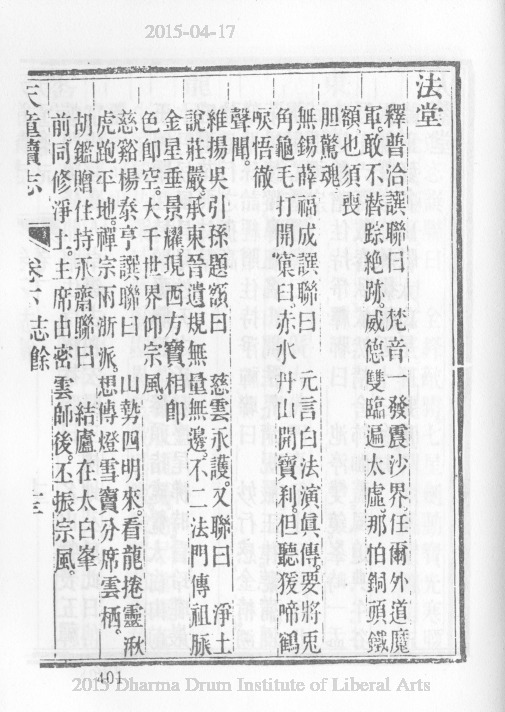 2015-04-17
法堂
釋普洽譔聯曰 梵音一發震沙界任爾外道魔
軍敢不替踪絶跡。威德雙臨遍太虛那怕銅頭鐵
額也須喪
胆驚魂
無錫薛福成譔聯曰 元言白法演眞傳要將兎
角龜毛打開窠臼赤水丹山開寶利但聽猨啼鶴
唳悟徹
聲聞。
維揚吳引孫題額曰 慈雲永護。又聯曰 淨土
說莊嚴承東晉遺規無量無邊。不二法門傳祖脈
金星垂景耀現西方寶相卽
色卽空。大千世界仰宗風。
慈谿楊泰亨譔聯曰 山勢四明來。看龍捲靈湫
虎跑平地禪宗兩浙派。想傳燈雪竇分席雲栖。
胡鑑贈住持永齋聯曰 結廬在太白峯
前同修淨土。主席由密雲師後。丕振宗風。
天童續志 卷下志餘 十三
401
2015 Dharma Drum Institute of Liberal Arts